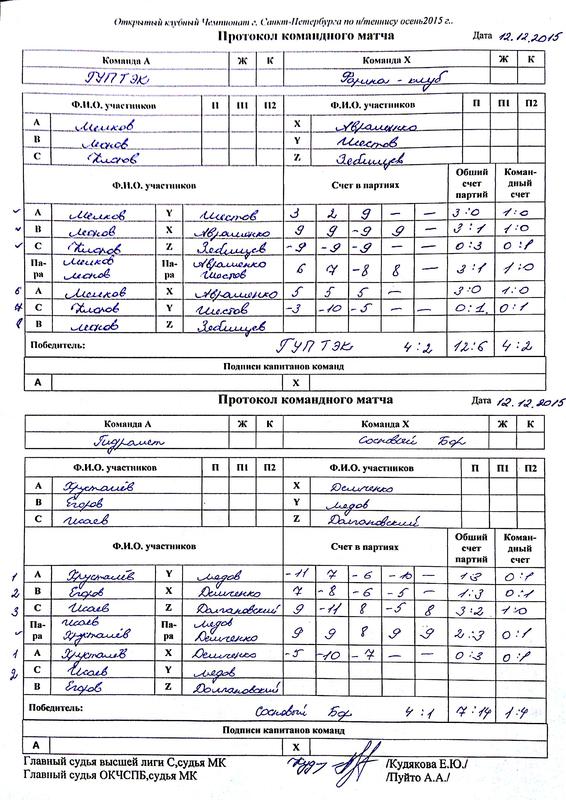 Открытый клубный Чемпионат г. Санкт-Петербурга по н/теннису осень2015 г..
Протокол командного матча Дата 12.12.2015
Команда А Ж К Команда Х Ж К
ГУПТЭК Фарина - клуб
Ф.И.О. участников П П1 П2 Ф.И.О. участников П П1 П2
А Мелков X Авраменко
В Леонов Y Шестов
С Клопов Z Зеблицев
Ф.И.О. участников Счет в партиях Общий счет партий Командный счет
А Мелков Y Шестов 3 2 9 — — 3:0 1:0
В Леонов X Авраменко 9 9 -9 9 — 3:1 1:0
С Клопов Z Зеблицев -9 -9 -9 — — 0:3 0:1
Пара Мелков Леонов Пара Авраменко Шестов 6 7 -8 8 — 3:1 1:0
6 А Мелков X Авраменко 5 5 5 — 3:0 1:0
7 С Клопов Y Шестов -3 -10 -5 — — 0:1 0:1
8 В Леонов Z Зеблицев
Победитель: ГУПТЭК 4:2 12:6 4:2
Подписи капитанов команд
А X
Протокол командного матча Дата 12.12.2015
Команда А Ж К Команда Х Ж К
Гидромет Сосновый Бор
Ф.И.О. участников П П1 П2 Ф.И.О. участников П П1 П2
А Хрусталёв X Демченко
В Егоров Y Медов
С Исаев Z Долгановский
Ф.И.О. участников Счет в партиях Общий счет партий Командный счет
1 А Хрусталёв Y Медов -11 7 -6 -10 — 1:3 0:1
2 В Егоров X Демченко 7 -8 -6 -5 — 1:3 0:1
3 С Исаев Z Долгановский 9 -11 8 -5 8 3:2 1:0
Пара Исаев Хрусталёв Пара Медов Демченко 9 9 8 9 9 2:3 0:1
1 А Хрусталёв X Демченко -5 -10 -7 — — 0:3 0:1
2 С Исаев Y Медов
В Егоров Z Долгановский
Победитель: Сосновый Бор 4:1 7:14 1:4
Подписи капитанов команд
А X
Главный судья высшей лиги С,судья МК /Кудякова Е.Ю./
Главный судья ОКЧСПБ,судья МК /Пуйто А.А./